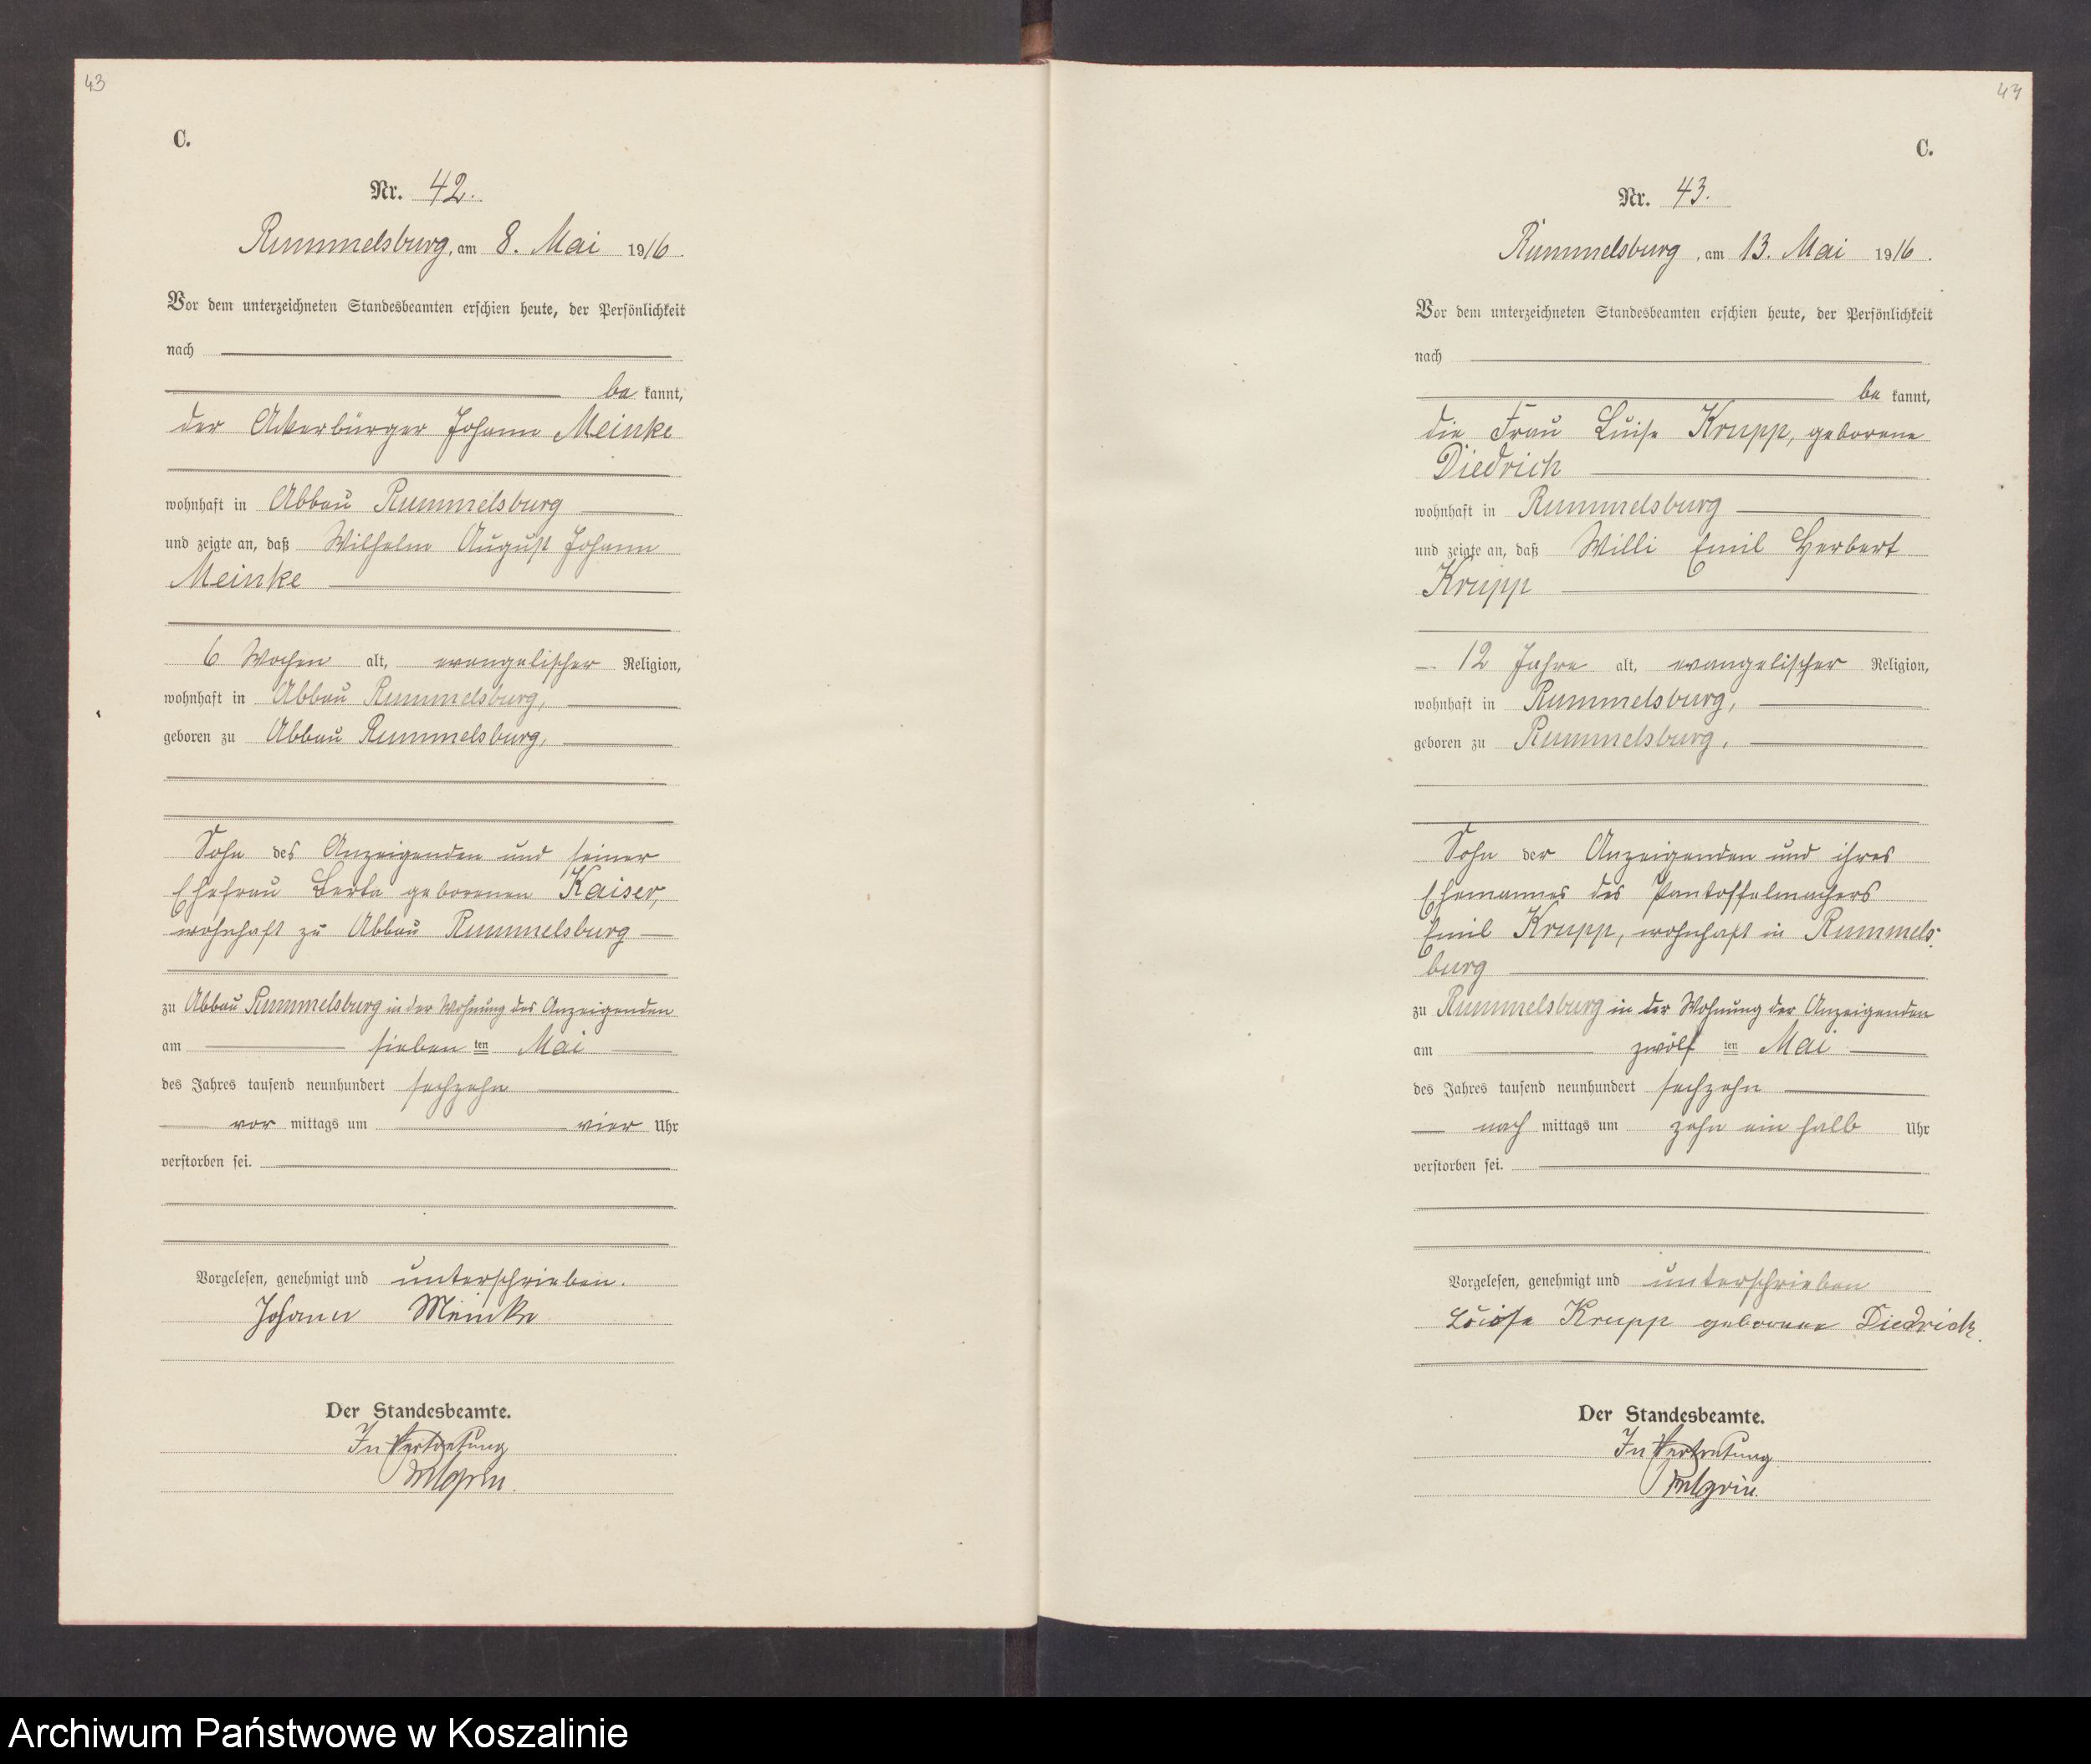 43
C.
Nr. 42.
Rummelsburg, am 8. Mai 1916.
Vor dem unterzeichneten Standesbeamten erschien heute, der Persönlichkeit
nach
be kannt,
der Ackerbürger Johann Meinke
wohnhaft in Abbau Rummelsburg
und zeigte an, daß Wilhelm August Johann
Meinke
6 Wochen alt, evangelischer Religion,
wohnhaft in Abbau Rummelsburg,
geboren zu Abbau Rummelsburg,
Sohn des Anzeigenden und seiner
Ehefrau Berta geborenen Kaiser,
wohnhaft zu Abbau Rummelsburg
zu Abbau Rummelsburg in der Wohnung des Anzeigenden
am sieben ten Mai
des Jahres tausend neunhundert sechzehn
vor mittags um vier Uhr
verstorben sei.
Vorgelesen, genehmigt und unterschrieben.
Johann Meinke
Der Standesbeamte.
In Vertretung
43
C.
Nr. 43.
Rummelsburg, am 13. Mai 1916.
Vor dem unterzeichneten Standesbeamten erschien heute, der Persönlichkeit
nach
be kannt,
die Frau Luise Krupp, geborene
Diedrich
wohnhaft in Rummelsburg
und zeigte an, daß Willi Emil Herbert
Krupp
12 Jahre alt, evangelischer Religion,
wohnhaft in Rummelsburg,
geboren zu Rummelsburg,
Sohn der Anzeigenden und ihres
Ehemannes des Pantoffelmachers
Emil Krupp, wohnhaft in Rummels-
burg
zu Rummelsburg in der Wohnung der Anzeigenden
am zwölf ten Mai
des Jahres tausend neunhundert sechzehn
nach mittags um zehn ein halb Uhr
verstorben sei.
Vorgelesen, genehmigt und unterschrieben
Luise Krupp geborene Diedrich.
Der Standesbeamte.
In Vertretung
Archiwum Państwowe w Koszalinie